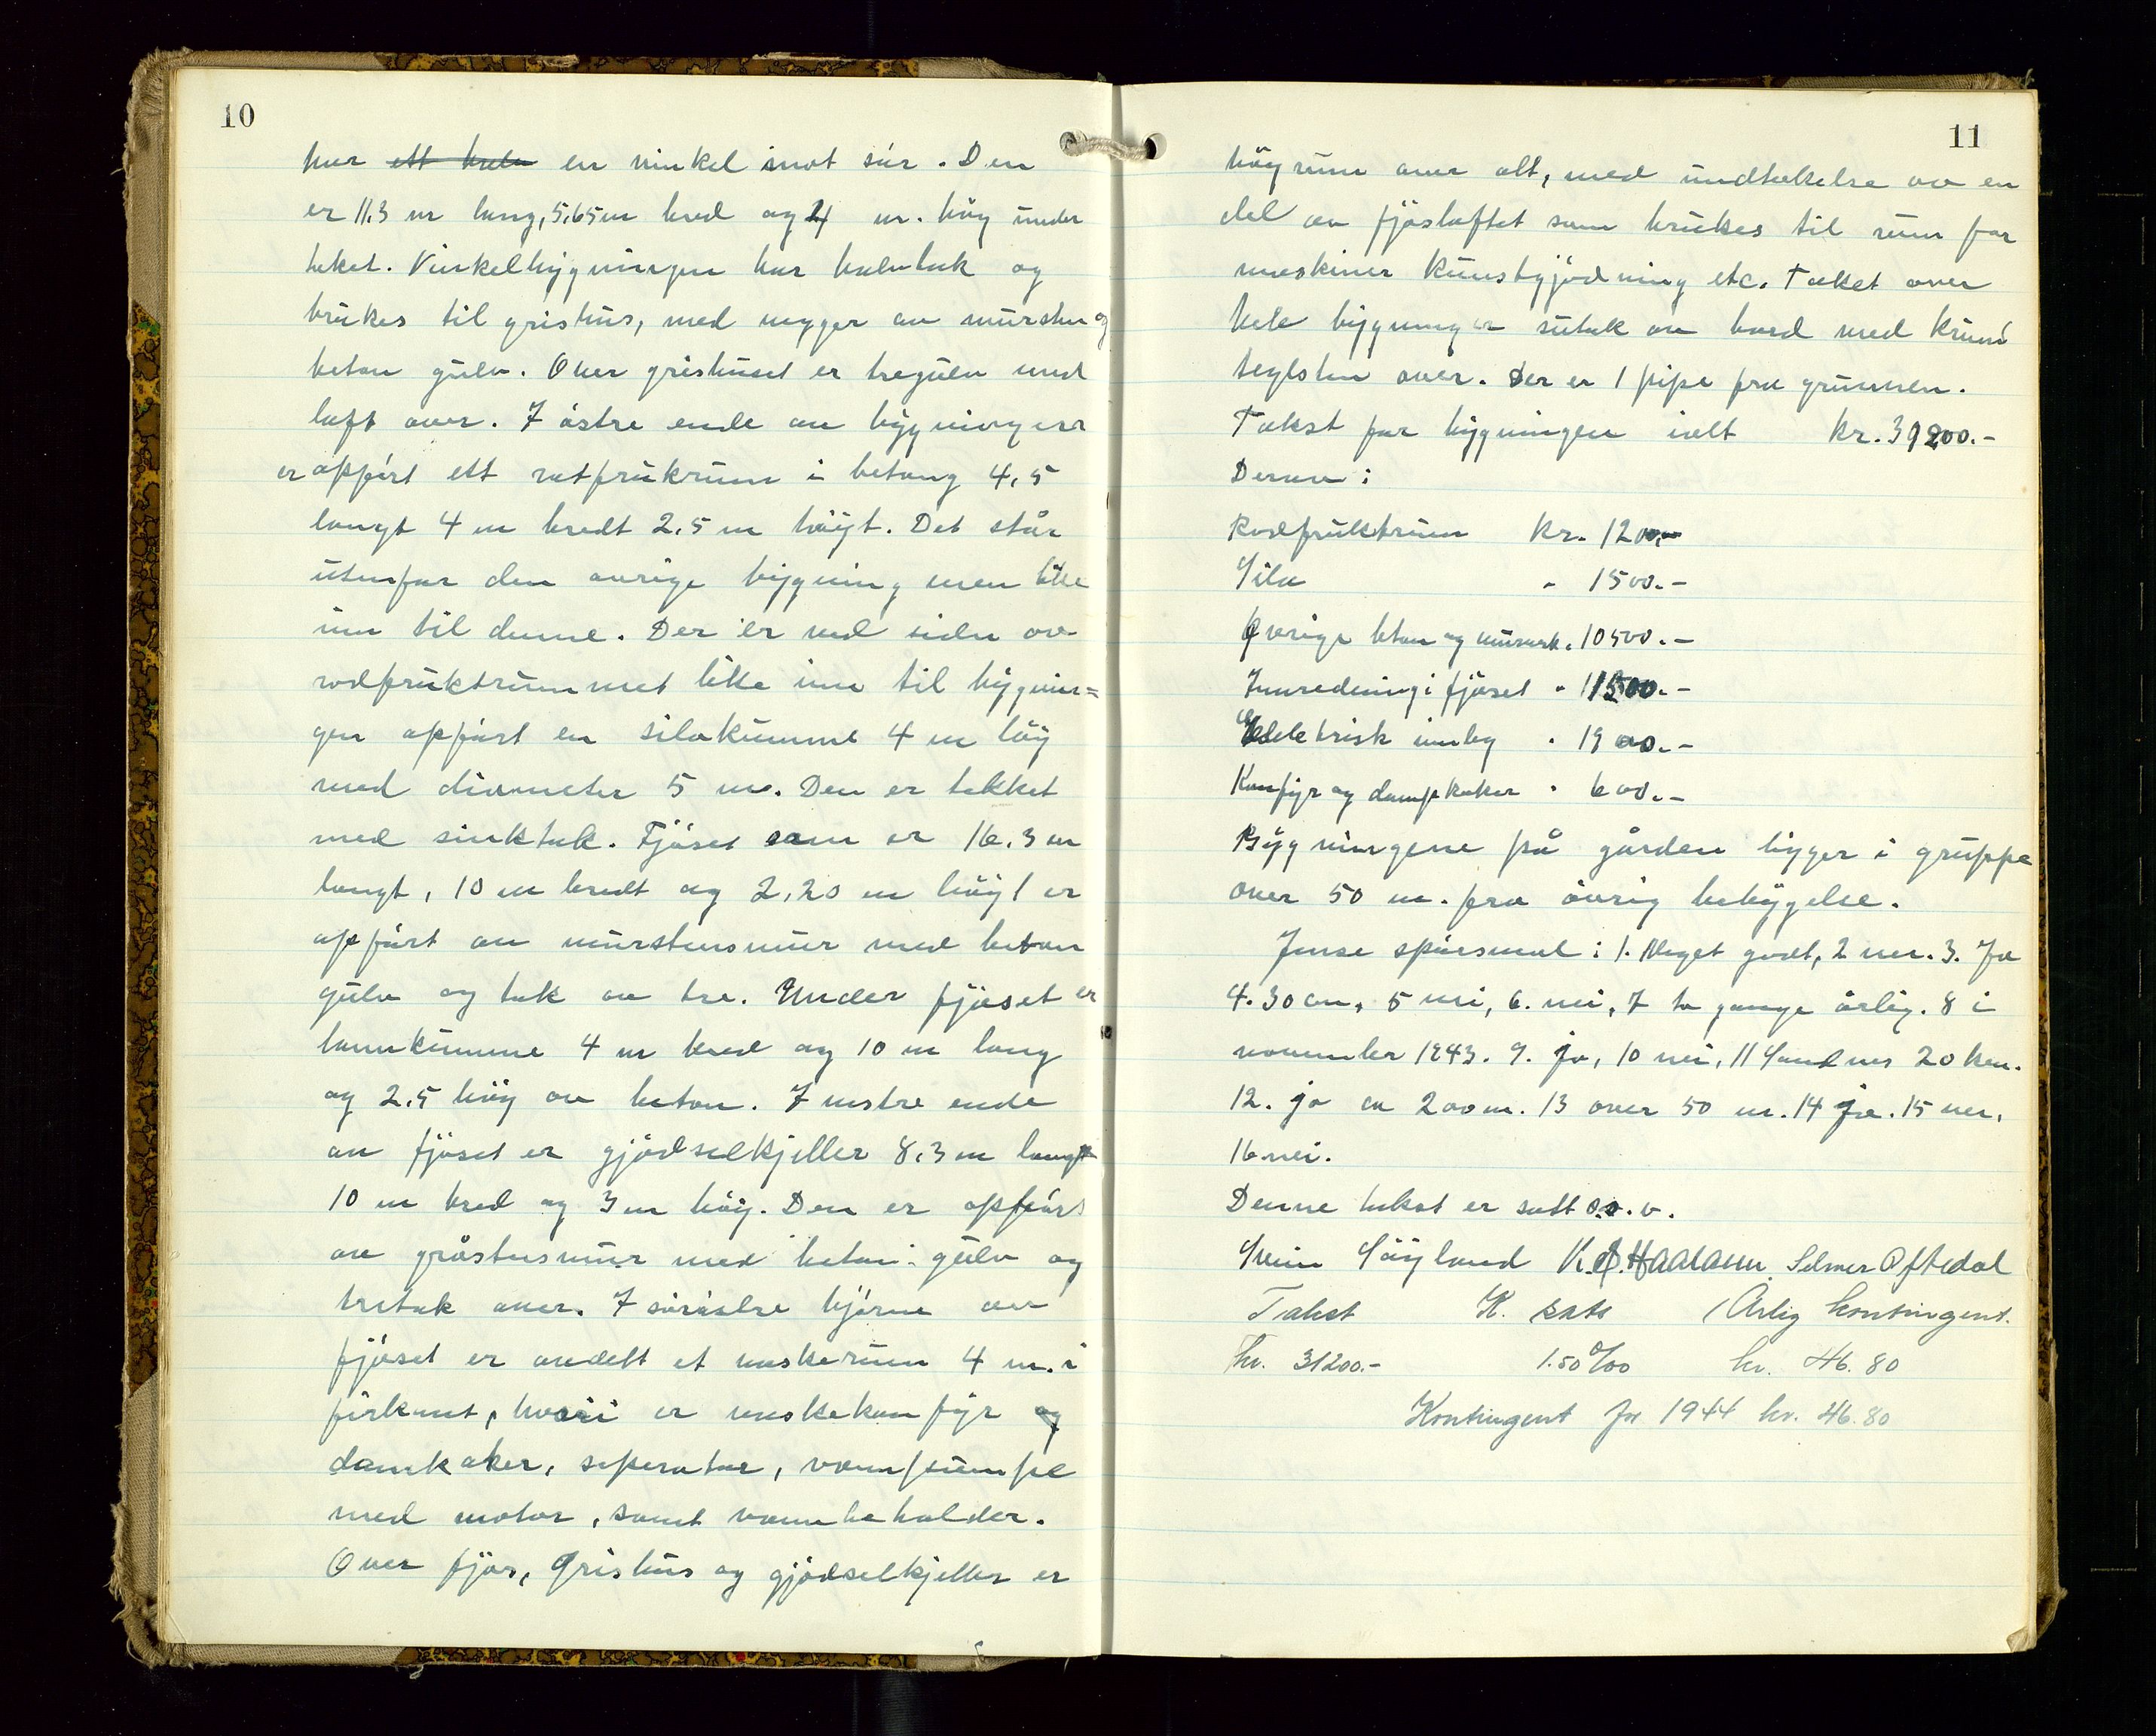 10
har ett halv en vinkel imot sür. Den
er 11,3 m lang, 5,65 m bred og 4 m. høy ünder
taket. Vinkelbygningen har halvtak og
brükes til grishüs, med vegger av mürsten og
beton gülv. Over grishüset er tregülv med
loft over. I østre ende av bygningen
er oppført ett rotfrüktrüm i betong 4,5
langt 4 m bredt 2,5 m høyt. Det står
ütenfor den øvrige bygning men like
inn til denne. Der er ved siden av
rodfrüktrümmet like inn til bygnin=
gen oppført en silokümme 4 m høy
med diameter 5 m. Den er tekket
med sinktak. Fjøset som er 16,3 m
langt, 10 m bredt og 2,20 m høyt er
oppført av mürstensmür med beton
gülv og tak av tre. Under fjøset er
lannkümme 4 m bred og 10 m lang
og 2,5 høy av beton. I vestre ende
av fjøset er gjødselkjeller 8,3 m langt
10 m bred og 3 m høy. Den er oppført
av gråstensmür med beton gülv og
tretak over. I sørøstre hjørne av
fjøset er avdelt et vaskerüm 4 m. i
firkant, hvori er vaskekomfyr og
damkoker, seperator, vannpümpe
med motor, samt vannbeholder.
Over fjøs, grishüs og gjødselkjeller er
11
høyrüm over alt, med ündtakelse av en
del av fjøsloftet som brükes til rüm for
maskiner künstgjødning etc. Taket over
hele bygningen sütak av bord med krüm
teglsten over. Der er 1 pipe fra grünnen.
Takst for bygningen ialt kr. 31200.-
Derav:
Rodfrüktrüm kr. 1200.-
Silo " 1500.-
Øvrige beton og mürverk " 10500.-
Innredning i fjøset " 11500.-
Elektrisk innleg " 1900.-
Komfyr og dampkoker " 600.-
Bygningene på gården ligger i grüppe
over 50 m. fra øvrig bebyggelse.
Jense spørsmal: 1. Meget godt, 2 nei. 3. Ja
4. 30 cm, 5 nei, 6. nei, 7 to gange årlig. 8 i
november 1943. 9. ja, 10 nei, 11 Sandnes 20 km.
12. ja ca 200 m. 13 over 50 m. 14 ja. 15 nei,
16 nei.
Denne takst er satt o.s.v.
Svein Søyland K. S. Haaland Selmer Oftedal
Takst K. sats Årlig kontingent.
kr. 31200.- 1.50 o/oo kr. 46.80
Kontingent for 1944 kr. 46.80